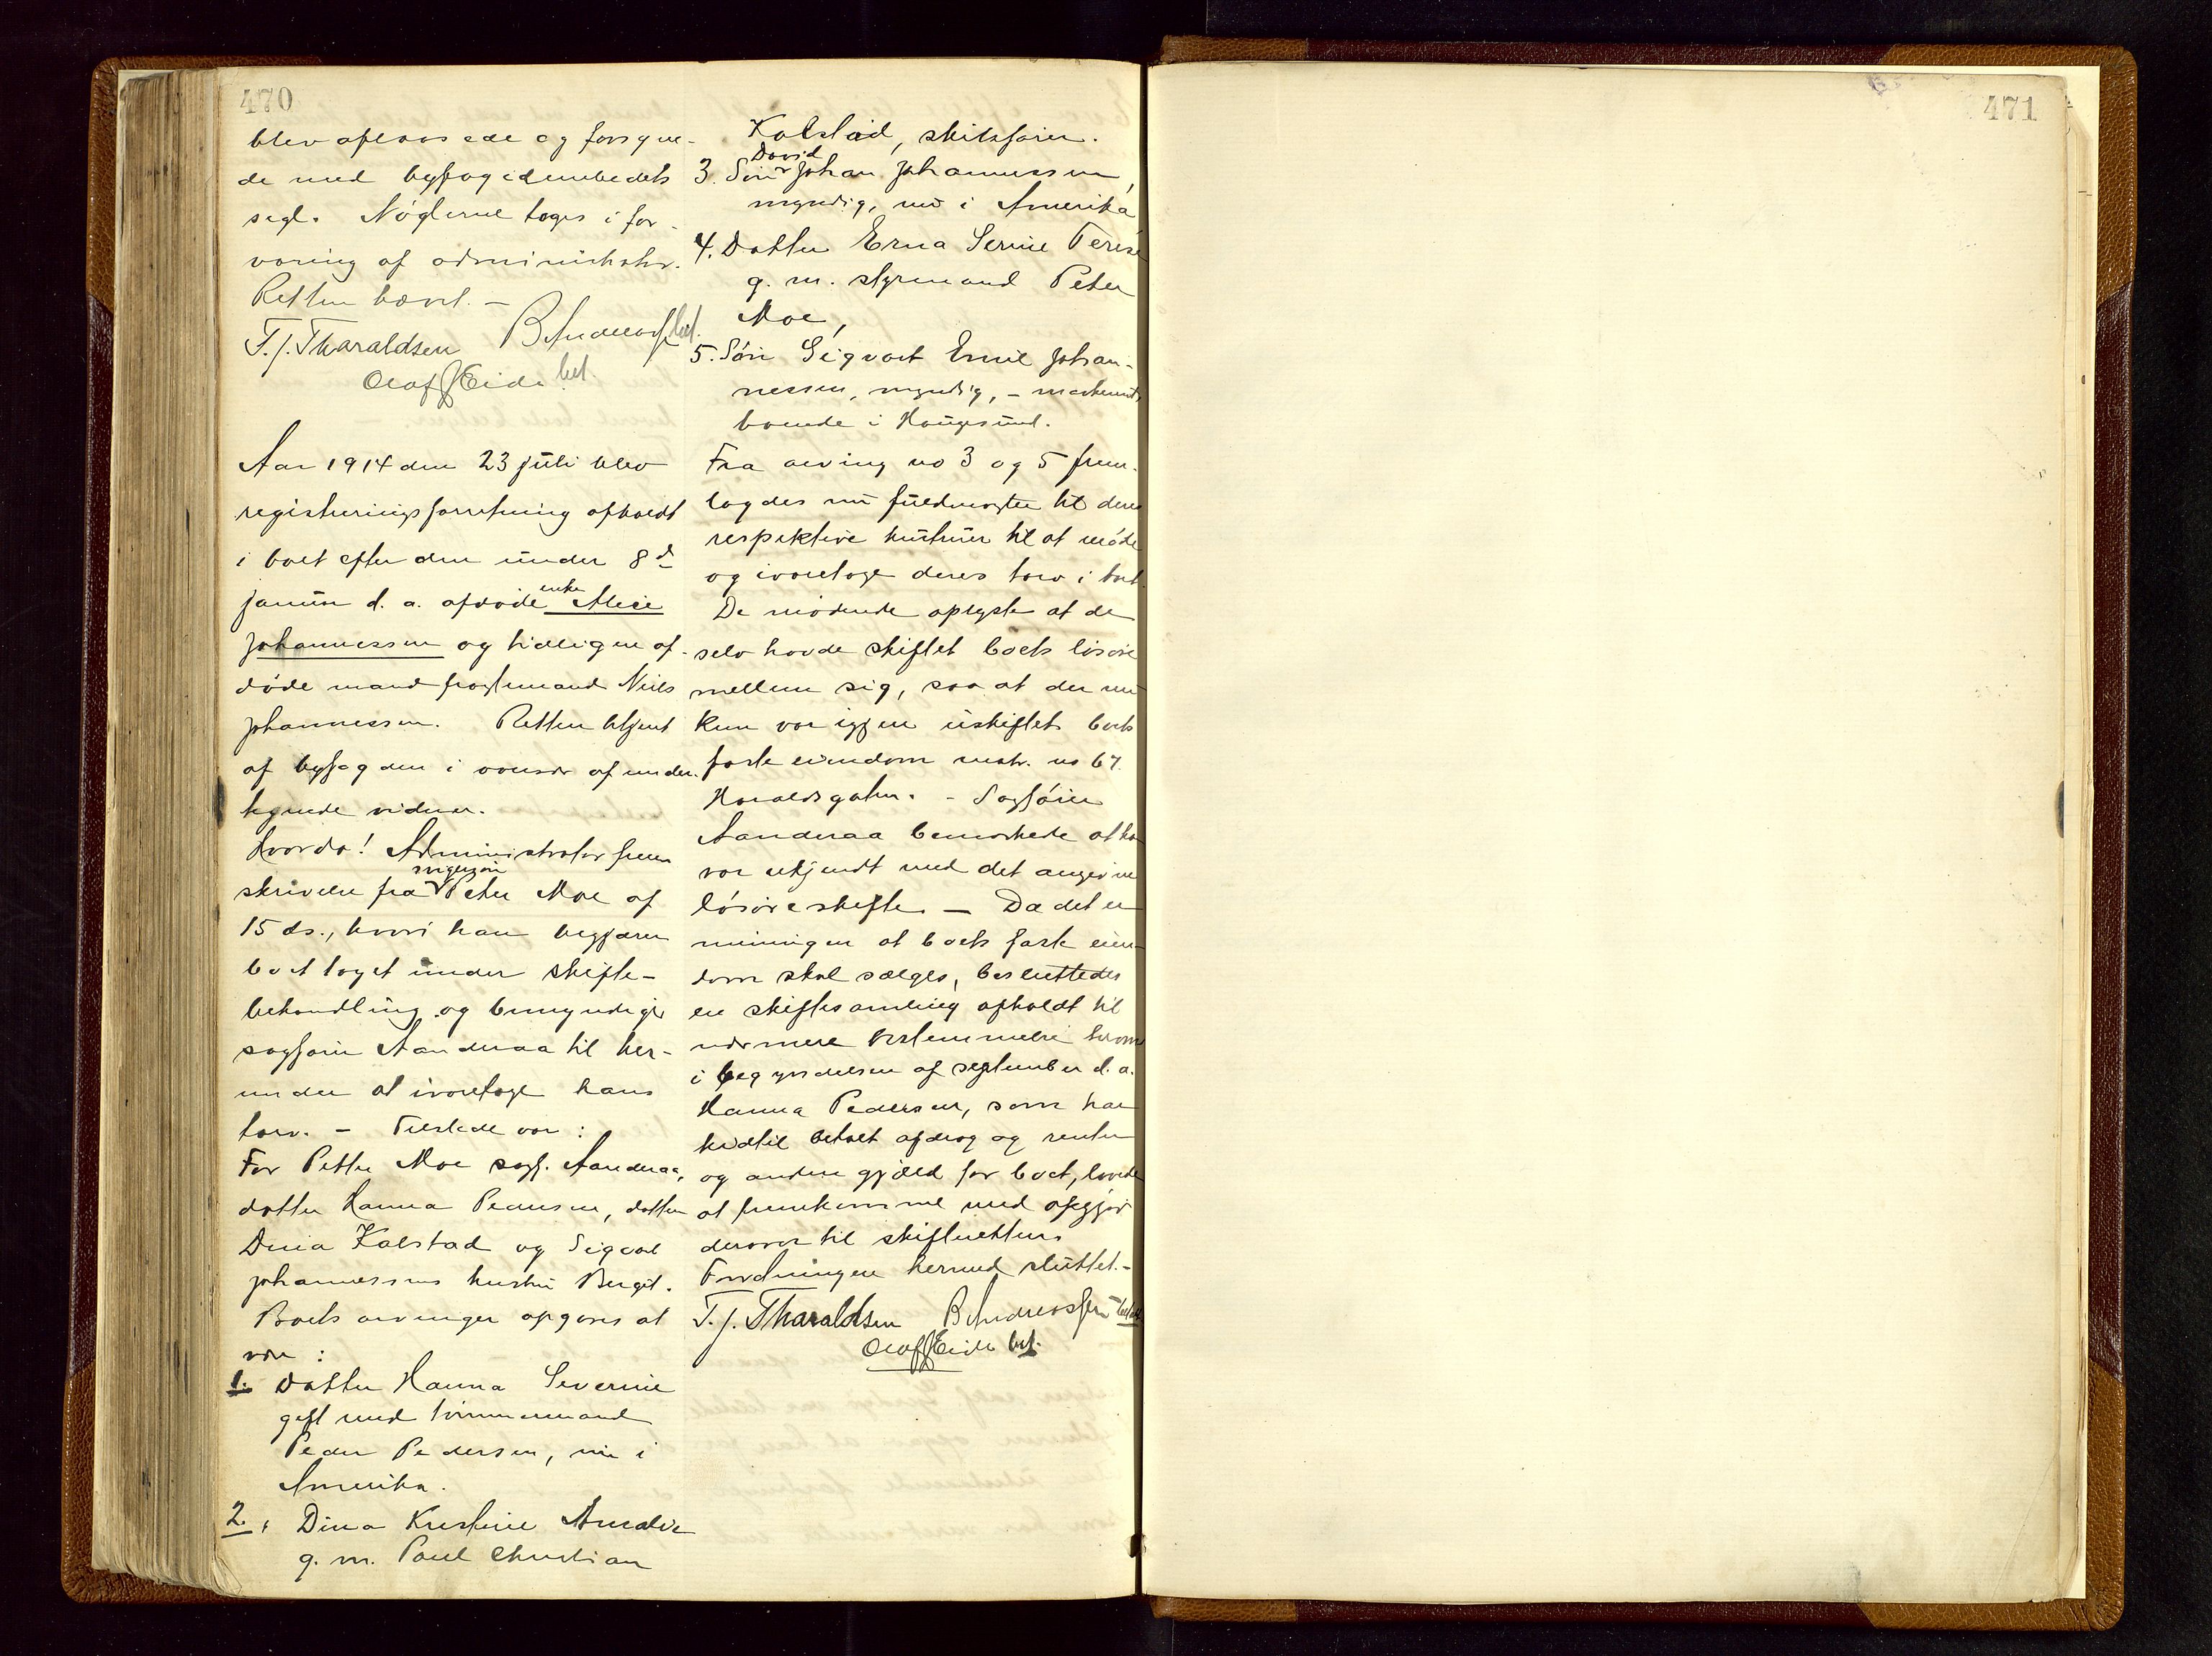 470
blev aflaasede og forsyne-
de med byfogedembedets
segl. Nøglerne toges i for-
varing af administrator.
Retten hævet. –
T. J. Tharaldsen B Andreassen bet.
Olaf Eide bet.
Aar 1914 den 23 juli blev
registreringsforretning afholdt
i boet efter den under 8d
januar d. a. afdøde enke Alice
Johannessen og tidligere af-
døde mand fragtemand Niels
Johannessen. Retten betjent
af byfogden i overvær af under-
tegnede vidner.
Hvorda! Administrator frem
skrivelse fra svigersøn Peter Moe af
15 ds., hvori han begjærer
boet taget under skifte-
behandling og bemyndiger
sagfører Aanderaa til her-
under at ivaretage hans
tarv. – Tilstede var:
For Petter Moe sagf. Aanderaa,
datter Hanna Pedersen, datter
Dina Kalstad og Sigval
Johannessens hustru Bergit.
Boets arvinger opgives at
være:
1. Datter Hanna Severine
gift med tømmermand
Peder Pedersen, nu i
Amerika.
2. Dina Kristine Amalie
g. m. Poul Christian
Kalstad, skibsfører.
3. Søn David Johan Johannessen,
myndig, nu i Amerika
4. Datter Erna Serine Terese
g. m. styrmand Peter
Moe,
5. Søn Sigvart Emil Johan-
nessen, myndig, –
boende i Haugesund.
Fra arving no 3 og 5 frem-
lagdes nu fuldmagter til deres
respektive hustruer til at møde
og ivaretage deres tarv i boet.
De mødende oplyste at de
selv havde skiftet boets løsøre
mellem sig, saa at der nu
kun var igjen uskiftet boets
faste eiendom matr. no 67
Haraldsgaten. – Sagfører
Aanderaa bemerkede at han
var ukjendt med det angivne
løsøreskifte – Da det er
meningen at boets faste eien-
dom skal sælges, besluttedes
en skiftesamling afholdt til
nærmere bestemmelse herom
i begyndelsen af september d. a.
Hanna Pedersen, som har
hidtil betalt afdrag og renter
og anden gjæld for boet, lovede
at fremkomme med opgjør
derover til skifteretten.
Forretningen hermed sluttet. –
T. J. Tharaldsen B Andreassen bet.
Olaf Eide bet.
471